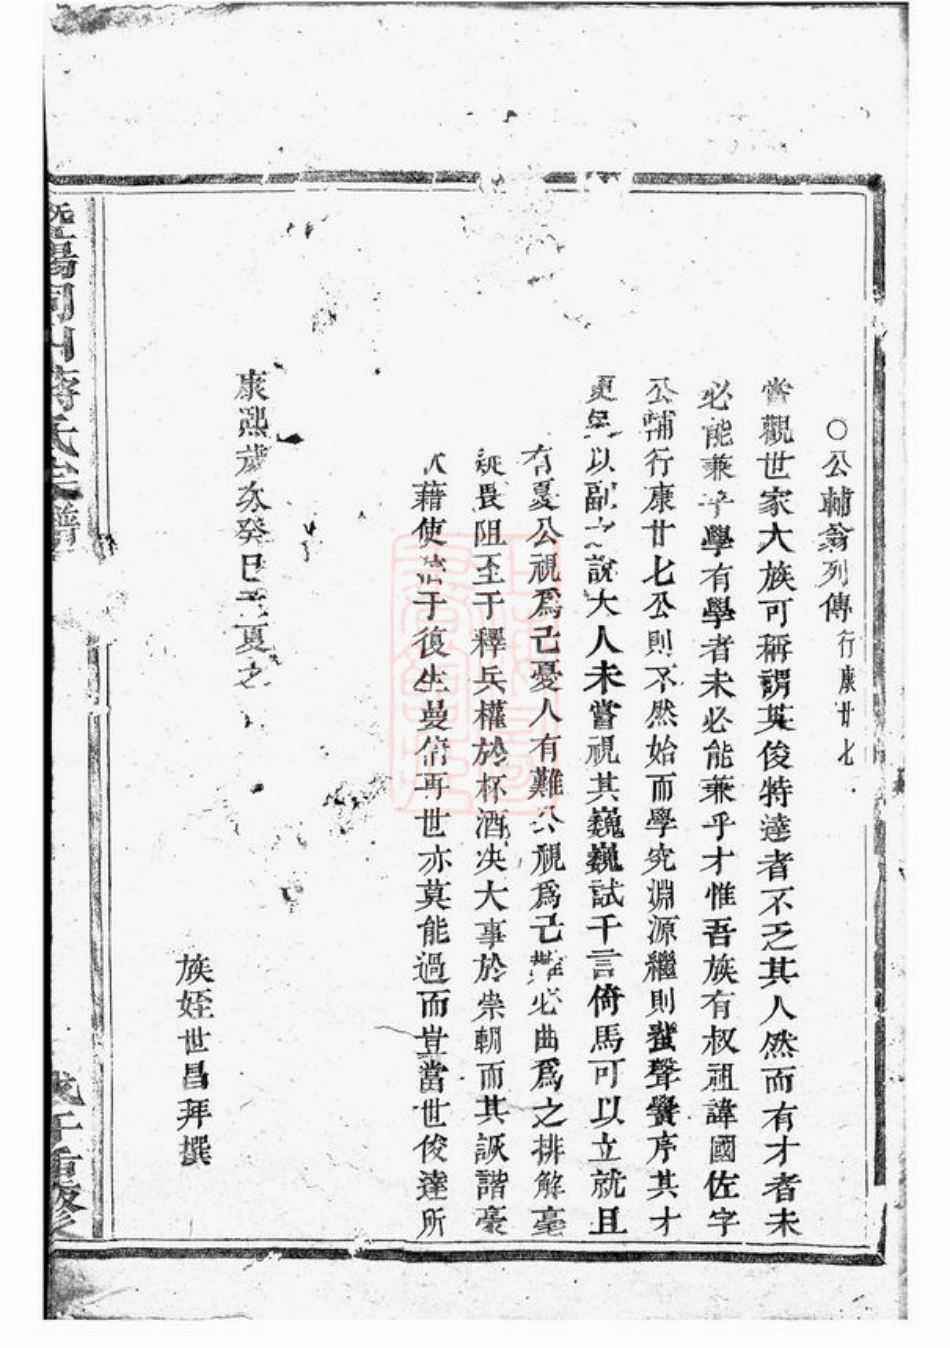 ○公輔翁列傳行康廿七
嘗觀世家大族可稱謂英俊特達者不乏其人然而有才者未
必能兼乎學有學者未必能兼乎才惟吾族有叔祖諱國佐字
公輔行康廿七公則不然始而學究淵源繼則蜚聲黌序其才
更以副之說大人未嘗視其巍巍試千言倚馬可以立就且
有憂公視爲己憂人有難公視爲己難必曲爲之排解毫
疑畏阻至于釋兵權於杯酒决大事於崇朝而其詼諧豪
藉使于復生曼倩再世亦莫能過而豈當世俊達所
康熙歲次癸巳孟夏之
族姪世昌拜撰
暨陽同山蔣氏宗譜
戊午重修